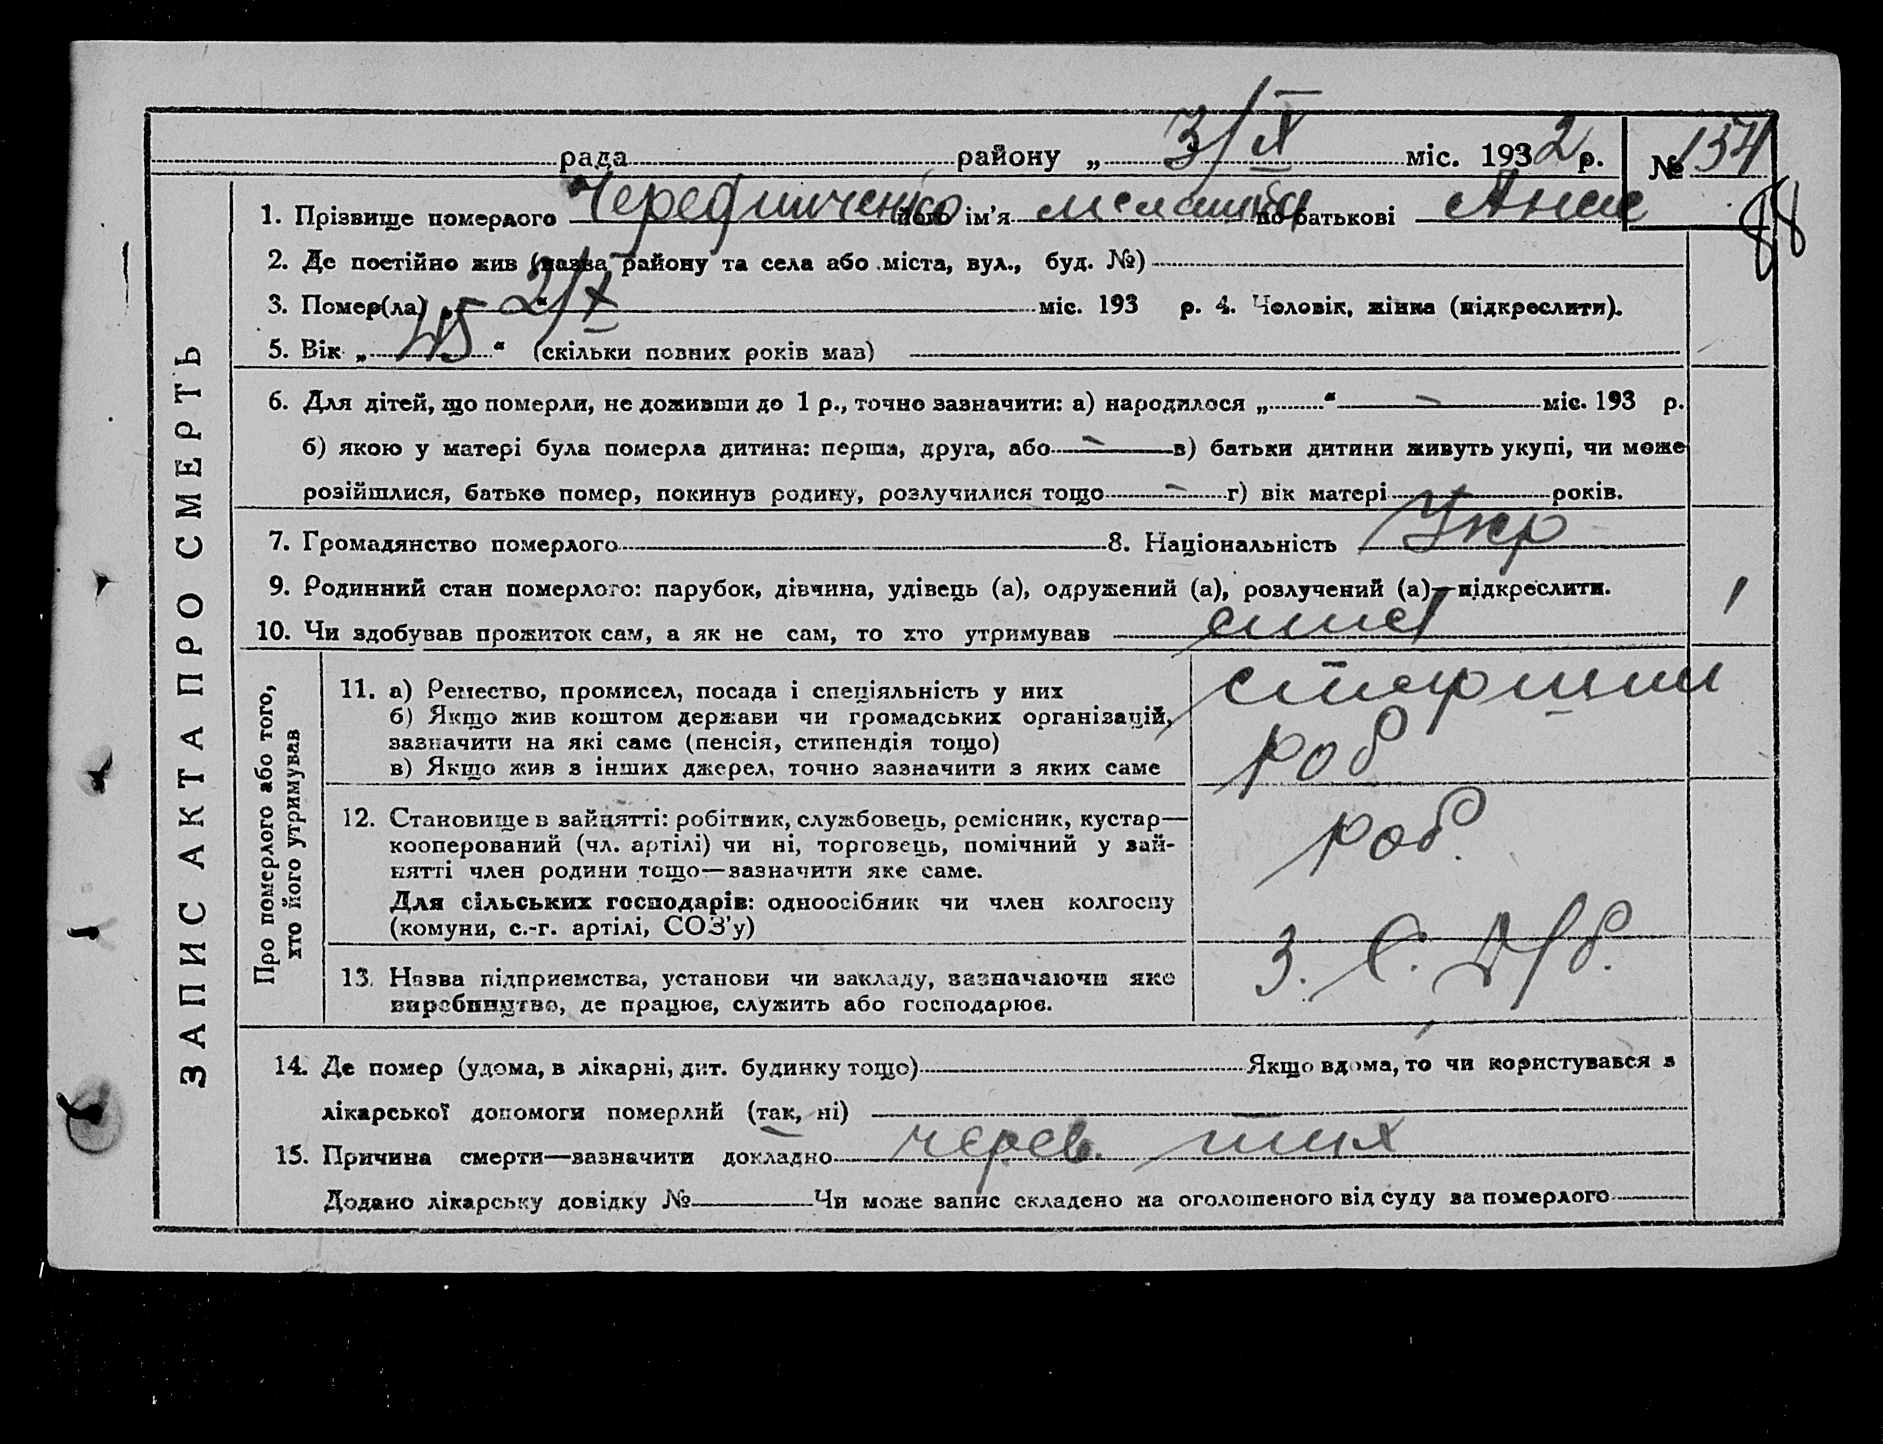 рада району „ 3/X міс. 1932 р. № 154
88
1. Прізвище померлого Чередниченко його ім’я Мелашка по батькові Анис
2. Де постійно жив (назва району та села або міста, вул., буд. №)
3. Помер(ла) „ 2/X “ міс. 193 р. 4. Чоловік, жінка (підкреслити).
5. Вік „ 45 “ (скільки повних років мав)
6. Для дітей, що померли, не доживши до 1 р., точно зазначити: а) народилося „ “ — міс. 193 р.
б) якою у матері була померла дитина: перша, друга, або — в) батьки дитини живуть укупі, чи може
розійшлися, батько помер, покинув родину, розлучилися тощо — г) вік матері років.
7. Громадянство померлого 8. Національність Укр
9. Родинний стан померлого: парубок, дівчина, удівець (а), одружений (а), розлучений (а)—підкреслити.
10. Чи здобував прожиток сам, а як не сам, то хто утримував
ЗАПИС АКТА ПРО СМЕРТЬ
Про померлого або того,
хто його утримував
11. а) Ремество, промисел, посада і спеціяльність у них
б) Якщо жив коштом держави чи громадських організацій,
зазначити на які саме (пенсія, стипендія тощо)
в) Якщо жив з інших джерел, точно зазначити з яких саме
роб
12. Становище в зайнятті: робітник, службовець, ремісник, кустар—
кооперований (чл. артілі) чи ні, торговець, помічний у зай-
нятті член родини тощо—зазначити яке саме.
Для сільських господарів: одноосібник чи член колгоспу
(комуни, с.-г. артілі, СОЗ’у)
роб.
13. Назва підприємства, установи чи закладу, зазначаючи яке
виробництво, де працює, служить або господарює.
14. Де помер (удома, в лікарні, дит. будинку тощо) Якщо вдома, то чи користувався з
лікарської допомоги померлий (так, ні)
15. Причина смерти—зазначити докладно черев. тиих
Додано лікарську довідку № Чи може запис складено на оголошеного від суду за померлого